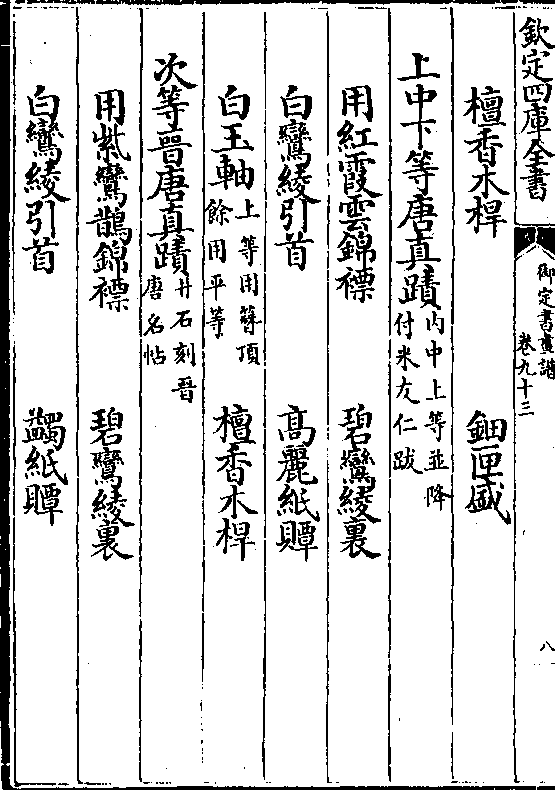 欽定四庫全書
御定書畫譜
卷九十三
八
檀香木桿　鈿匣盛
上中下等唐真蹟内中上等並降付米友仁跋
用紅霞雲錦褾　碧鸞綾裏
白鸞綾引首　高麗紙贉
白玉軸上等用簪頂餘用平等　檀香木桿
次等晉唐真蹟并石刻晉唐名帖
用紫鸞鵲錦褾　碧鸞綾裏
白鸞綾引首　蠲紙贉